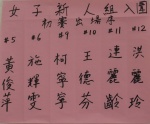 女子新人組入圍
初賽出場序
#5 #6 #9 #10 #11 #12
黃俊萍 施輝雯 柯寧寧 王德芬 連麗齡 洪麗玲